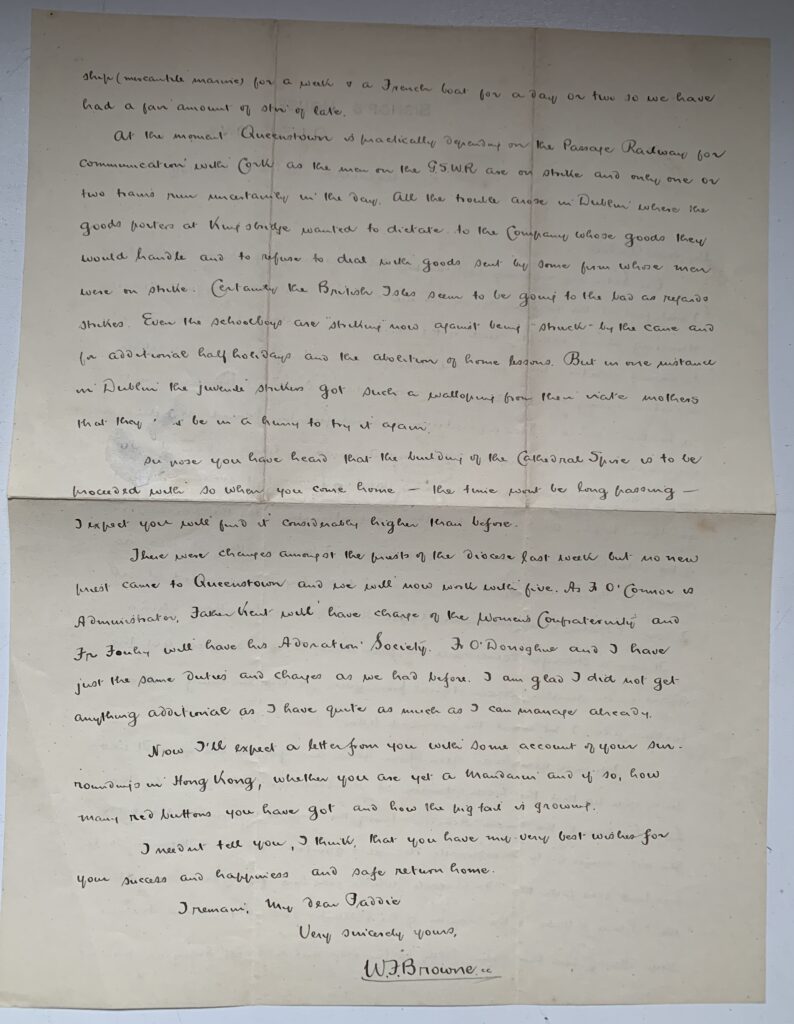 ship (mercantile marine) for a week & a French boat for a day or two so we have
had a fair amount of stir of late.
At the moment Queenstown is practically depending on the Passage Railway for
communication with Cork as the men on the G.S.W.R are on strike and only one or
two trains run uncertainly in the day. All the trouble arose in Dublin where the
goods porters at Kingsbridge wanted to dictate to the Company whose goods they
would handle and to refuse to deal with goods sent by some firm whose men
were on strike. Certainly the British Isles seem to be going to the bad as regards
strikes. Even the schoolboys are "striking" now against being "struck" by the cane and
for additional half holidays and the abolition of home lessons. But in one instance
in Dublin the juvenile strikers got such a walloping from their irate mothers
that they be in a hurry to try it again.
pose you have heard that the building of the Cathedral Spire is to be
proceeded with so when you come home — the time wont be long passing —
I expect you will find it considerably higher than before.
There were changes amongst the priests of the diocese last week but no new
priest came to Queenstown and we will now work with five. As Fr O'Connor is
Administrator, Father Kent will have charge of the Women's Confraternity and
Fr will have his Adoration Society. Fr O'Donoghue and I have
just the same duties and charges as we had before. I am glad I did not get
anything additional as I have quite as much as I can manage already.
Now I'll expect a letter from you with some account of your sur-
roundings in Hong Kong, whether you are yet a Mandarin and if so, how
many red buttons you have got and how the pig tail is growing.
I needn't tell you, I think, that you have my very best wishes for
your success and happiness and safe return home.
I remain, My dear Paddie
Very sincerely yours,
W.F. Browne. cc